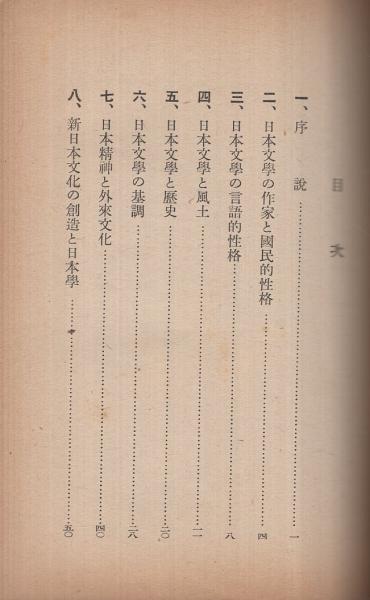 目次
一、序説……一
二、日本文學の作家と國民的性格……四
三、日本文學の言語的性格……八
四、日本文學と風土……一一
五、日本文學と歷史……二〇
六、日本文學の基調……二八
七、日本精神と外來文化……四〇
八、新日本文化の創造と日本學……五〇